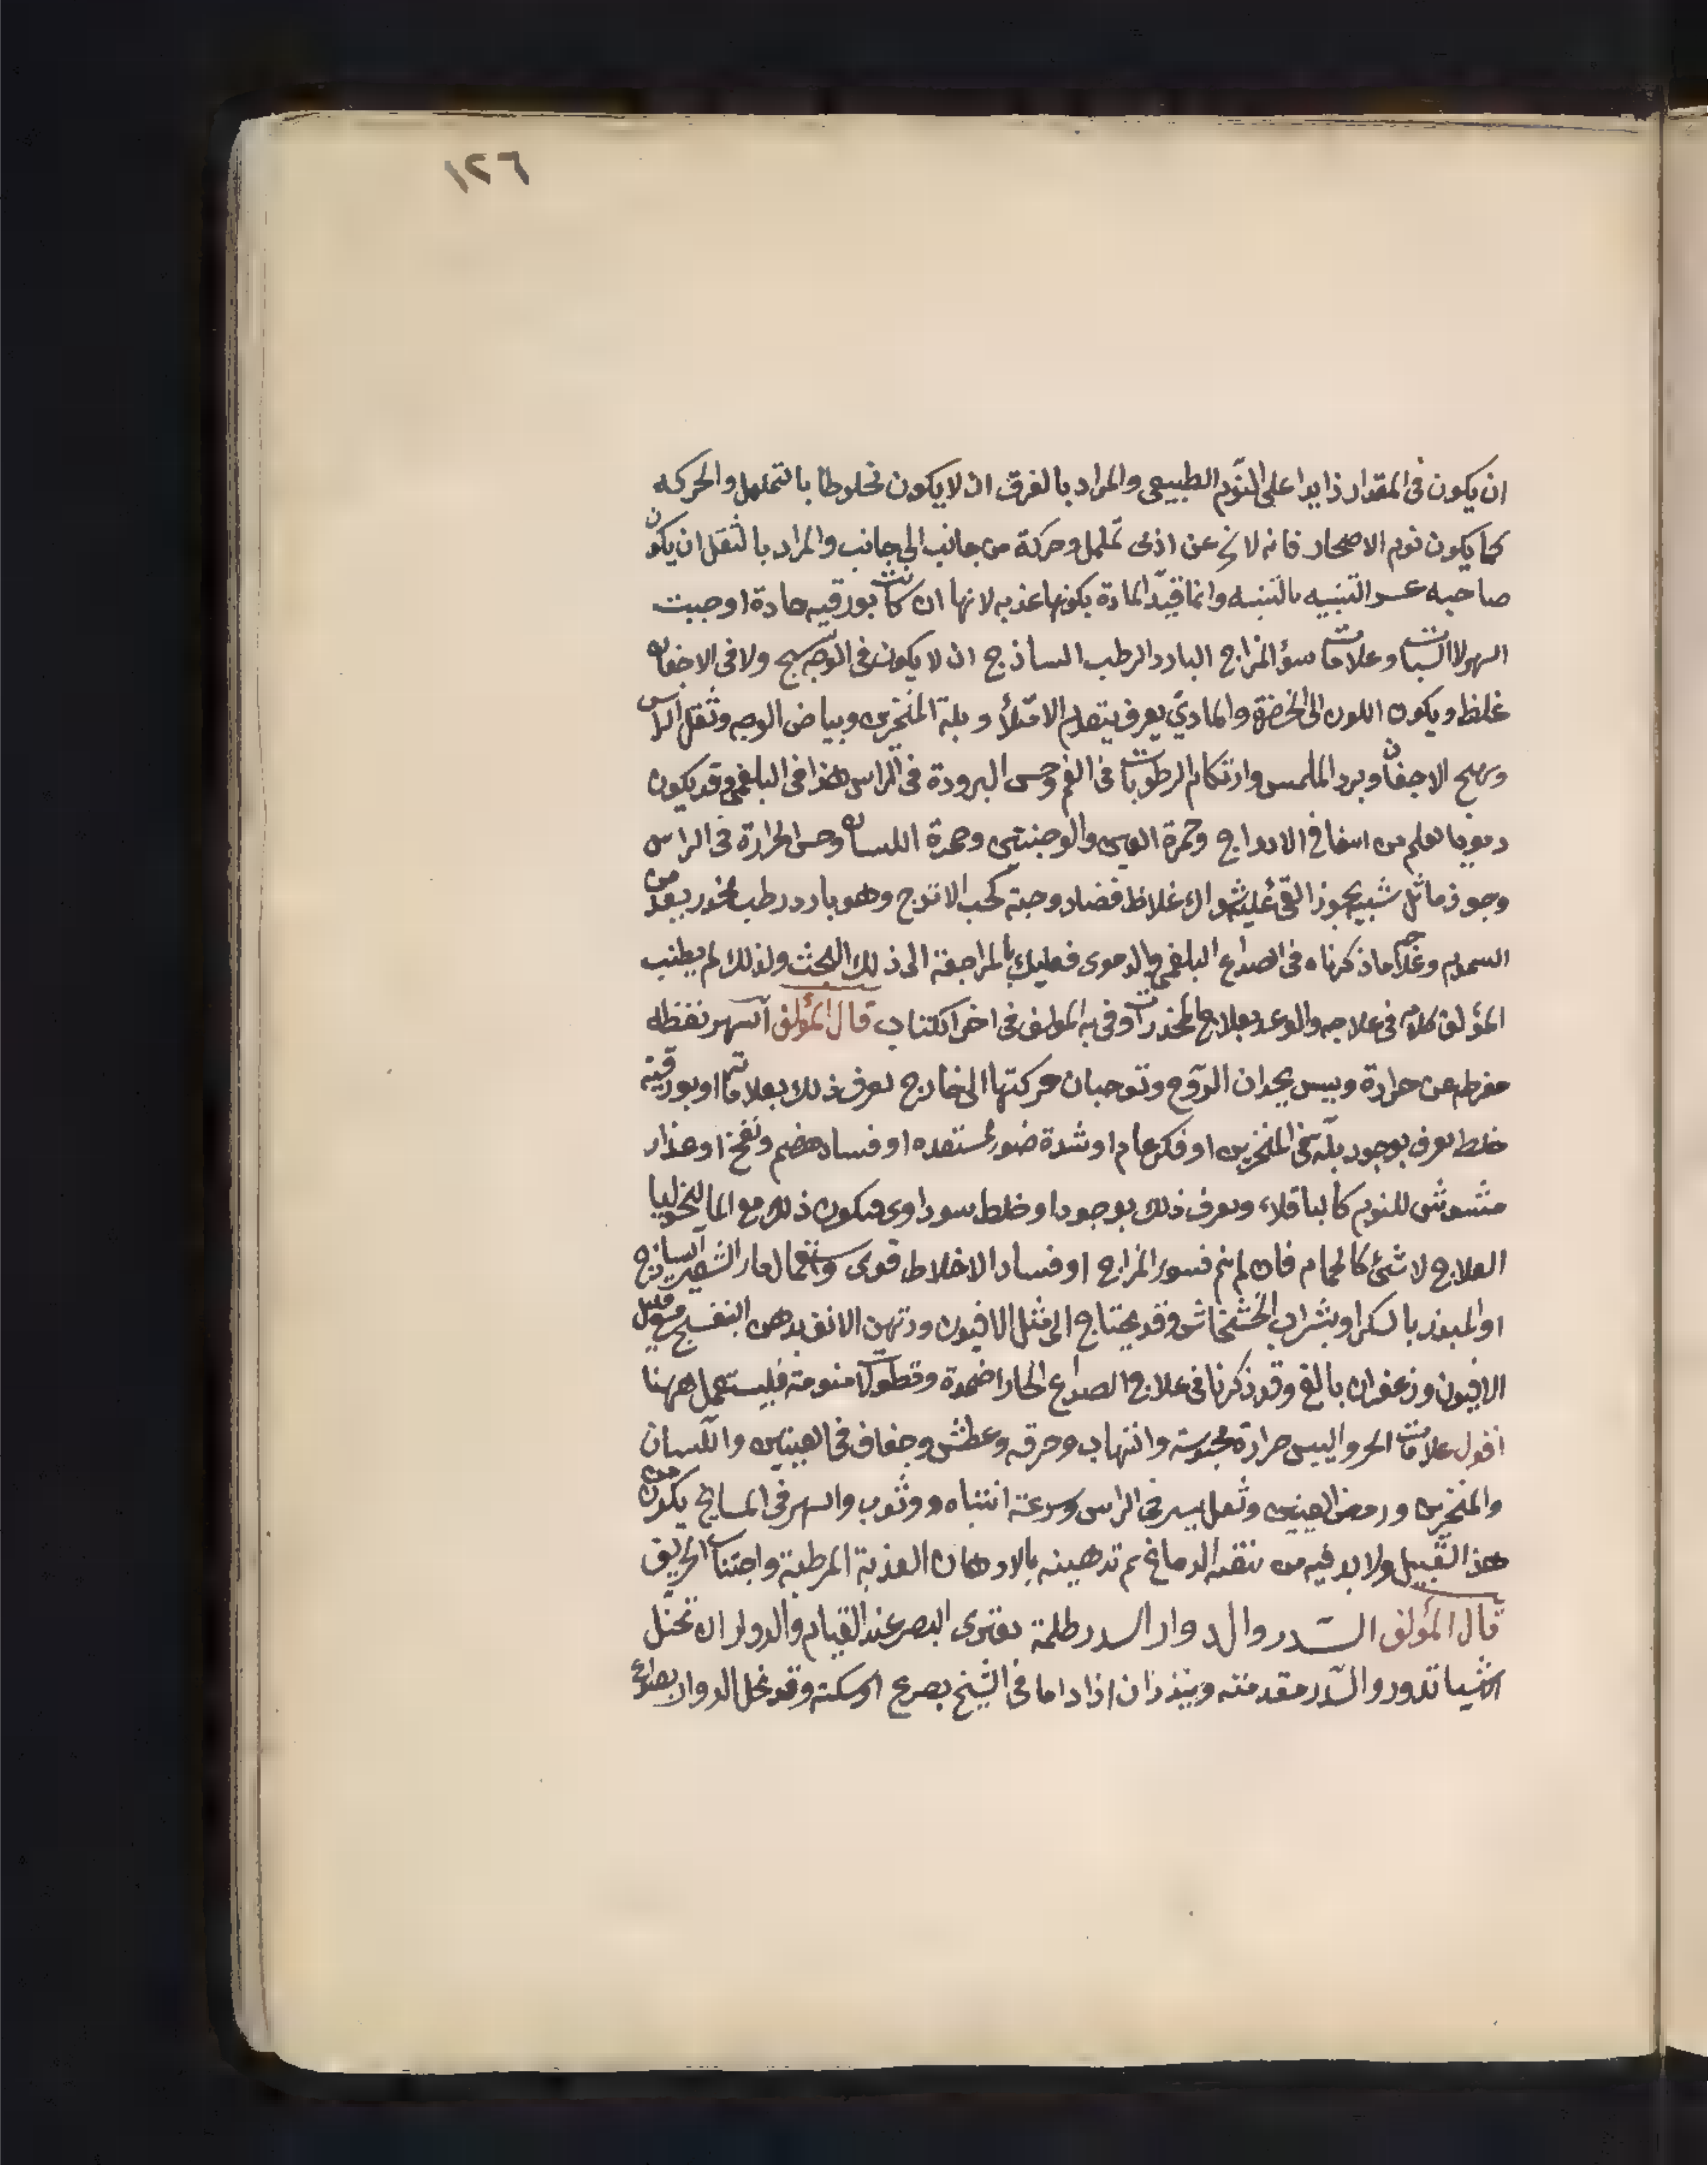 ١٢٦
ان يكون فى المقدار زايدا على النّوم الطبيعى والمراد بالغرق ان لا يكون مخلوطا بالتململ والحركه
كما يكون نوم الاصحاء فانه لا يخ عن ادنى تململ وحركة من جانب الى جانب والمراد بالثقل ان يكون
صاحبه عسر التنبيه بالتنبه وانما قيّد المادة بكونها عذبه لانها ان كانت بورقيه حادة اوجبت
السهر لا السبات وعلامات سؤ المزاج البارد الرطب الساذج ان لا يكون فى الوجه تهبج ولا فى الاجفان
غلظ ويكون اللون الى الخضرة والمادىّ يعرف بتقدم الامتلأ وبلة المنخرين وبياض الوجه وثقل الراس
وتهبج الاجفان وبرد الملمس وارتكام الرطوبات فى الفم وحس البرودة فى الراس هذا فى البلغمى وقد يكون
دمويا يعلم من انتفاخ الاوداج وحمرة العين والوجنتين وحمرة اللسان وحس الحرارة فى الراس
وجوز ماثل شبيه بجوز القئ عليه شواك غلاظ قصار وحبه كحب الاترج وهو بارد رطب مخدر يعد من
السموم وعلاجه ما ذكرناه فى الصداع البلغمى والدموى فعليك بالمراجعة الى ذلك البحث ولذلك لم يطنب
المؤلف كلامه فى علاجه والوعد بعلاج المخدرات وفى به المولف فى اخر الكتاب قال المؤلف السهر يقظه
مفرطه من حرارة ويبس يحدان الرّوح وتوجبان حركتها الى خارج يعرف ذلك بعلاماتها او بورقية
خلط يعرف بوجود بلّة فى المنخرين او فكر عام او شدة ضوء لمستعده او فساد هضم ونفخ او غذاء
مشوش للنوم كالباقلاء ويعرف ذلك بوجودها او خلط سوداوى فيكون ذلك مع الماليخوليا
العلاج لا شئ كالحمام فان لم ينم فسوء المزاج او فساد الاخلاط قوى واستعمال ماء الشعير الساذج
او المبزز بالسكر او بشراب الخشخاش وقد يحتاج الى مثل الافيون ودهن الانف بدهن البنفسج مع قليل
الافيون وزعفران بالغ وقد ذكرنا فى علاج الصداع الحار اضمدة وقطولات منومة فليستعمل ههنا
اقول علامات الحر واليبس حرارة محسوسة والتهاب وحرقه وعطش وجفاف فى العينين واللسان
والمنخرين ورمص العينين وثقل يسير فى الراس وسرعة انتباه ووثوب والسهر فى المسايخ يكون من
هذا القبيل ولا بد فيه من تنقية الدماغ ثم تدهينه بالادهان العذبة المرطبة واجتناب الحريق
قال المؤلف السدر والدوار السدر ظلمة يعترى البصر عند القيام والدوار ان تخيّل
الاشيا تدور والسدر مقدمته وينذران اذا داما فى الشيخ بصرع او سكته وقد تحل الدوار بصداع